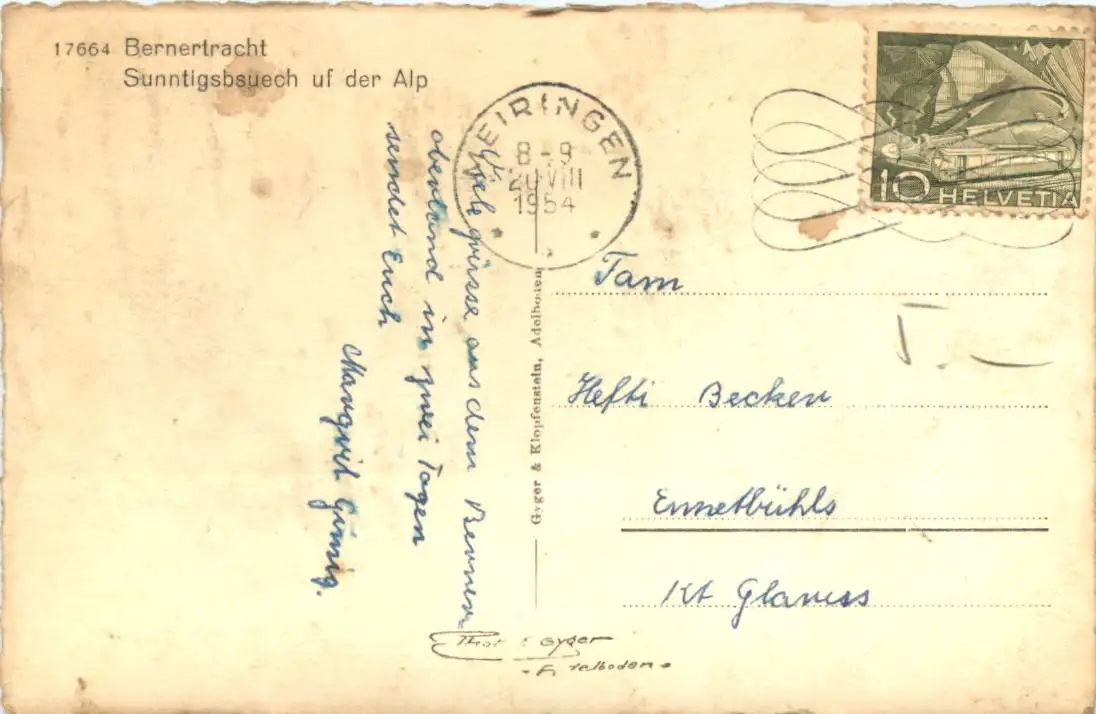 17664 Bernertracht
Sunntigsbsuech uf der Alp
MEIRINGEN
8-9
20.VIII
1954
10 HELVETIA
Viele grüsse aus dem Berner
oberland in zwei Tagen
sendet Euch
Margrit
Gyger & Klopfenstein, Adelboden
Fam
Hefti Becker
Ennetbühls
Kt Glaruss
T.
Phot E Gyger
Adelboden